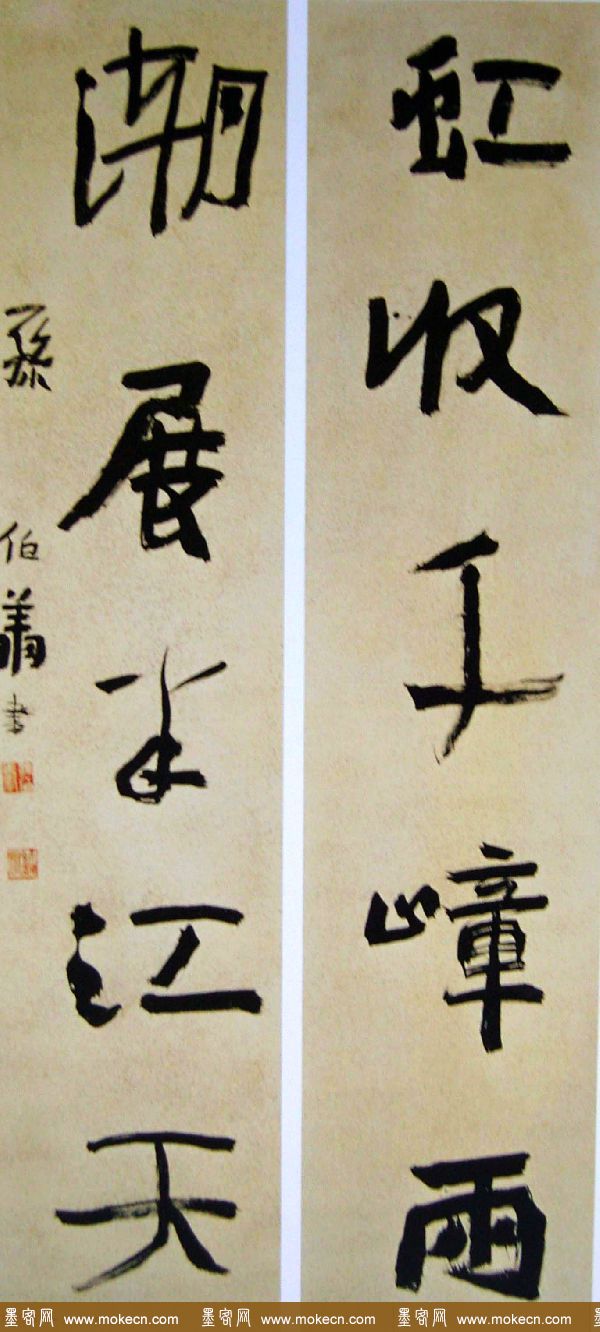 虹收千嶂雨
潮展半江天
孫伯翥書
墨客网 www.mokecn.com 墨客网 www.mokecn.com 墨客网 www.mokecn.com